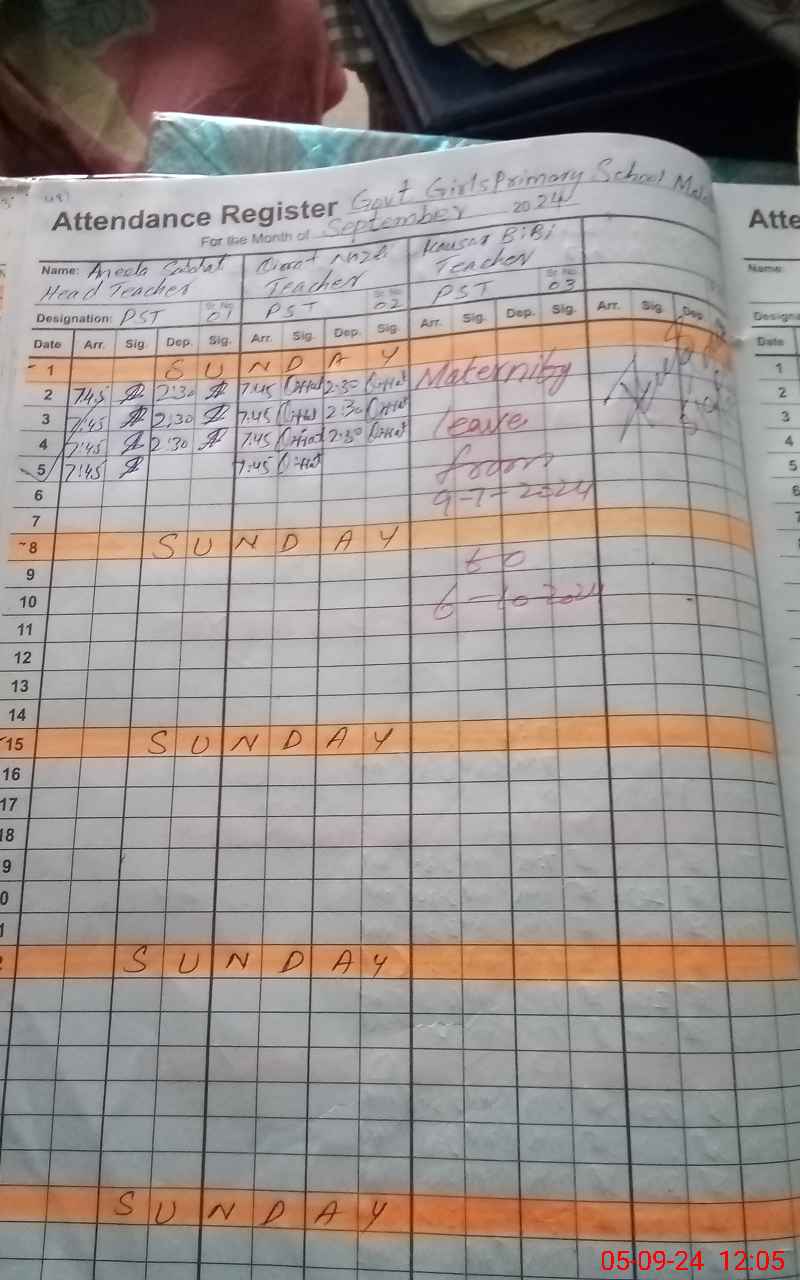 Attendance Register Govt Girls Primary School
For the Month of September 2024
Name: Aneela Head Teacher
Teacher
Kausar BiBi Teacher
Designation: PST Sr. No. 01
PST Sr. No. 02
PST Sr. No. 03
Date Arr. Sig. Dep. Sig. Arr. Sig. Dep. Sig. Arr. Sig. Dep. Sig. Arr. Sig. Dep.
1 S U N D A Y
2 7:45 2:30 7:45 2:30 Maternity
3 7:45 2:30 7:45 2:30 leave
4 7:45 2:30 7:45 2:30
5 7:45 7:45 from
6 9-7-2024
7
8 S U N D A Y
9 to
10 6-10-2024
11
12
13
14
15 S U N D A Y
16
17
18
9
0
1
S U N D A Y
S U N D A Y
Atte
Name:
Designa
Date
1
2
3
4
5
6
05-09-24 12:05